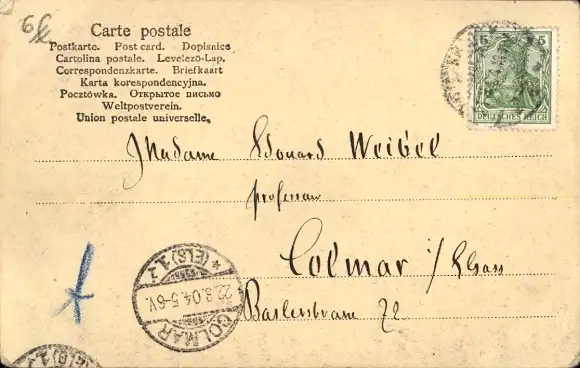 6
Carte postale
Postkarte. Post card. Dopisnice
Cartolina postale. Levelező-Lap.
Correspondenzkarte. Briefkaart
Karta korespondencyjna.
Pocztówka. Открытое письмо
Weltpostverein.
Union postale universelle.
5 5
DEUTSCHES REICH
Madame Edouard Weibel
professeur
Colmar i/Elsass
Baslerstrasse 22
COLMAR
22.3.04.5-6V.
*(ELS)1z
(ELS)1z